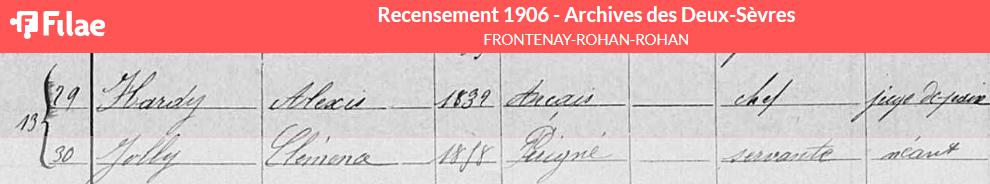 Filae
Recensement 1906 - Archives des Deux-Sèvres
FRONTENAY-ROHAN-ROHAN
29 Hardy Alexis 1839 Arçais chef juge de paix
13
30 Jolly Clémence servante néant